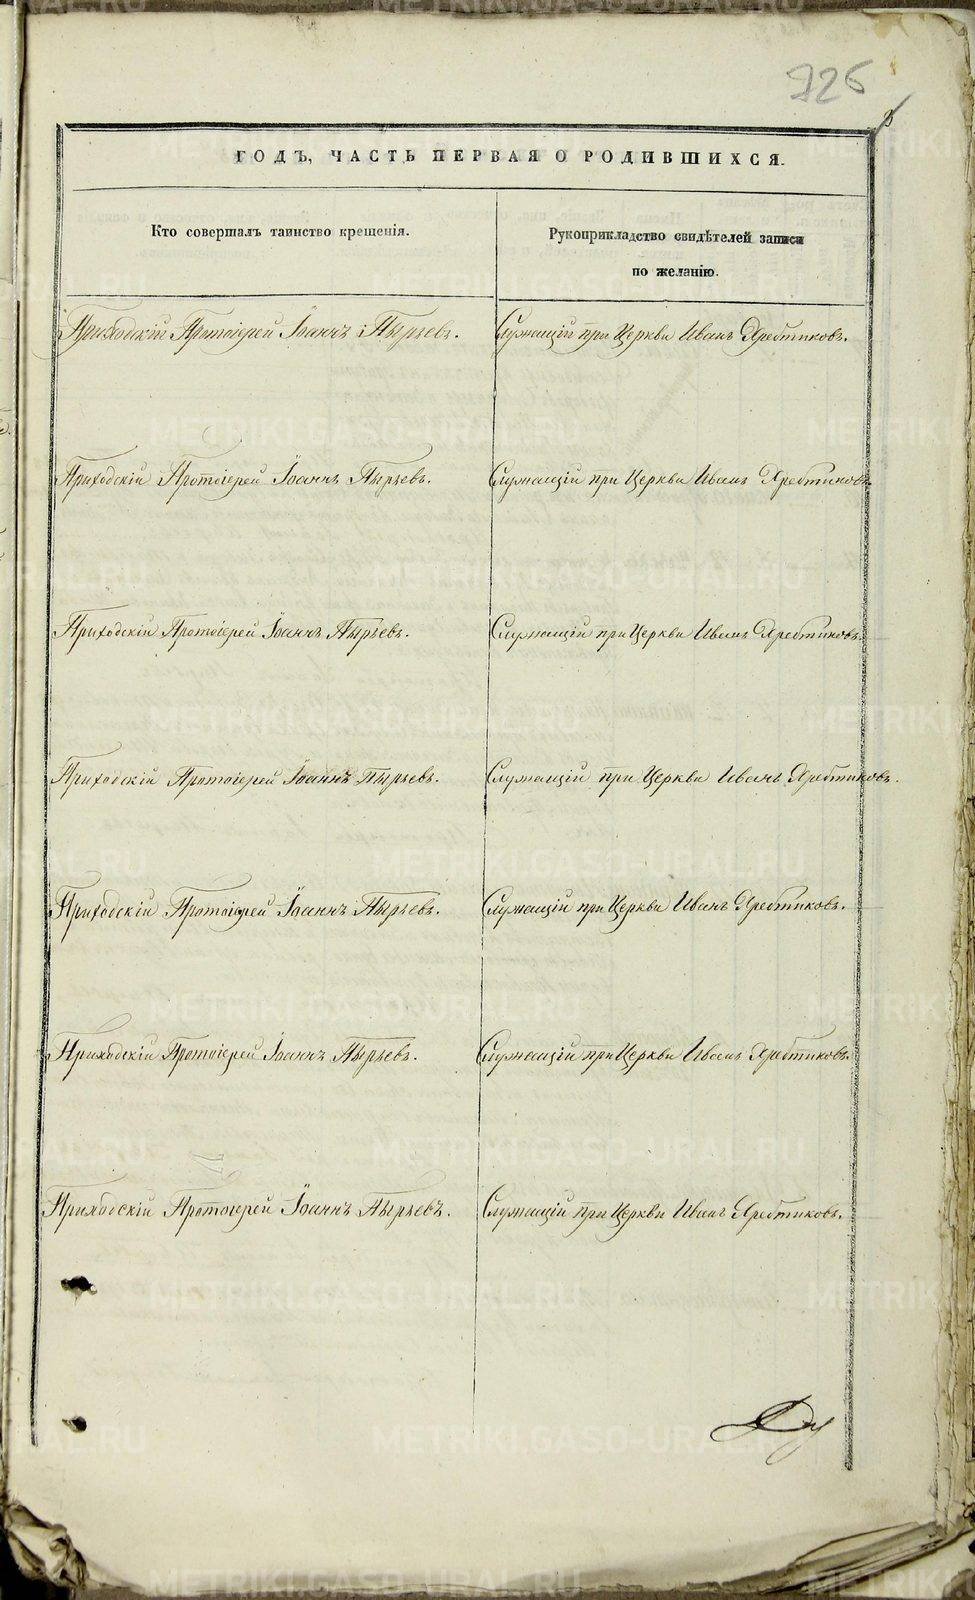 726
ГОДЪ, ЧАСТЬ ПЕРВАЯ О РОДИВШИХСЯ.
Кто совершалъ таинство крещенія.
Рукоприкладство свидѣтелей записи
по желанію.
Приходскій Протоіерей Іоаннъ Пырьевъ. Служащій при Церкви Иванъ Хребтиковъ.
Приходскій Протоіерей Іоаннъ Пырьевъ. Служащій при Церкви Иванъ Хребтиковъ
Приходскій Протоіерей Іоаннъ Пырьевъ. Служащій при Церкви Иванъ Хребтиковъ.
Приходскій Протоіерей Іоаннъ Пырьевъ. Служащій при Церкви Иванъ Хребтиковъ.
Приходскій Протоіерей Іоаннъ Пырьевъ. Служащій при Церкви Иванъ Хребтиковъ.
Приходскій Протоіерей Іоаннъ Пырьевъ. Служащій при Церкви Иванъ Хребтиковъ.
Приходскій Протоіерей Іоаннъ Пырьевъ. Служащій при Церкви Иванъ Хребтиковъ.
METRIKI.GASO-URAL.RU